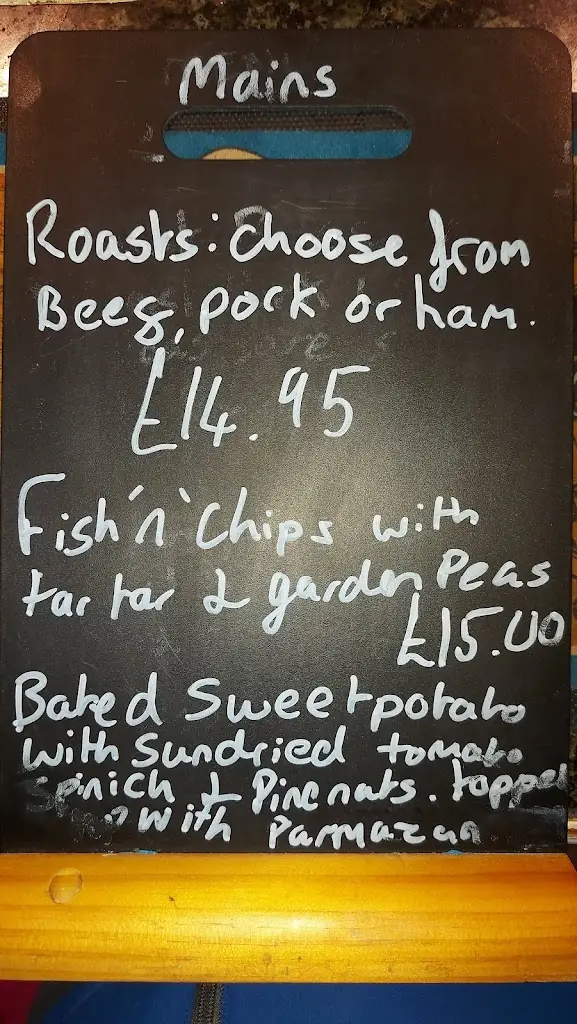 Mains
Roasts: Choose from
Beef, pork or ham.
£14.95
Fish 'n' Chips with
tartar & garden Peas
£15.00
Baked Sweetpotato
with Sundried tomato
Spinich & Pinenats. topped
with Parmazan